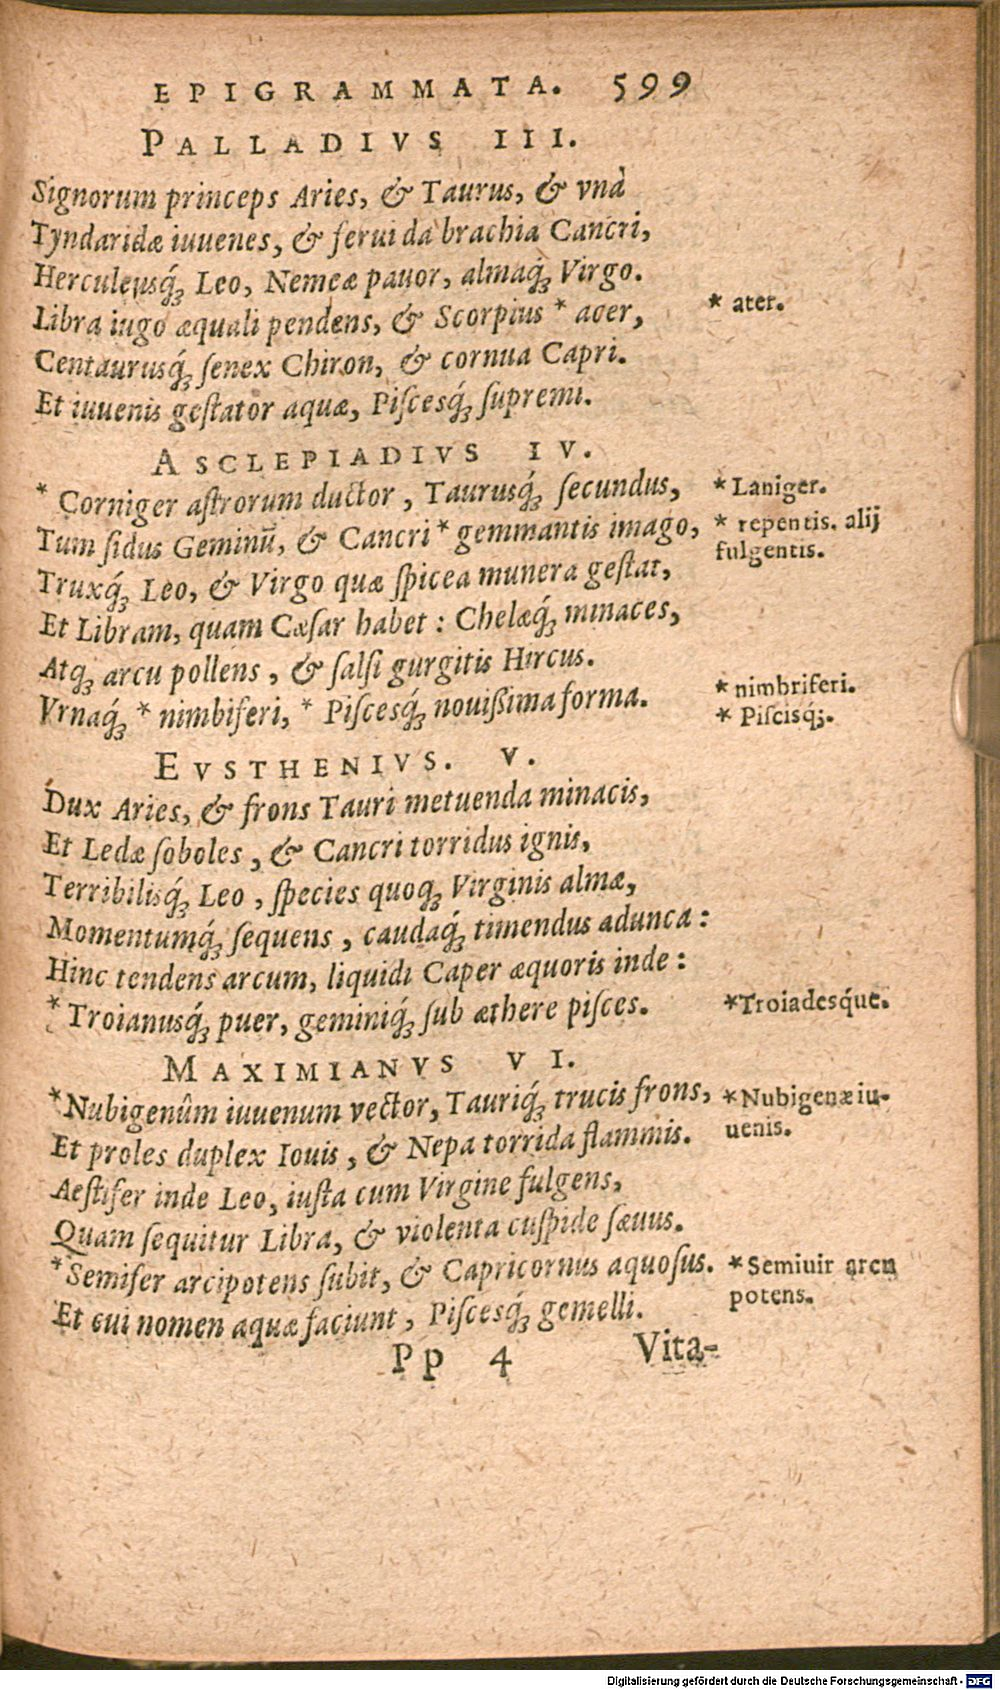 EPIGRAMMATA. 599
PALLADIVS III.
Signorum princeps Aries, & Taurus, & vnà
Tyndaridæ iuuenes, & feruida brachia Cancri,
Herculeusq́ꝫ Leo, Nemeæ pauor, almaq́ꝫ Virgo.
Libra iugo æquali pendens, & Scorpius * acer,
* ater.
Centaurusq́ꝫ ſenex Chiron, & cornua Capri.
Et iuuenis geſtator aquæ, Piſcesq́ꝫ ſupremi.
ASCLEPIADIVS IV.
* Corniger aſtrorum ductor, Taurusq́ꝫ ſecundus,
* Laniger.
Tum ſidus Geminū, & Cancri * gemmantis imago,
* repentis. alij
fulgentis.
Truxq́ꝫ Leo, & Virgo quæ ſpicea munera geſtat,
Et Libram, quam Cæſar habet: Chelæq́ꝫ minaces,
Atqꝫ arcu pollens, & ſalſi gurgitis Hircus.
Vrnaq́ꝫ * nimbiferi, * Piſcesq́ꝫ nouißima forma.
* nimbriferi.
* Piſcisq́;.
EVSTHENIVS. V.
Dux Aries, & frons Tauri metuenda minacis,
Et Ledæ ſoboles, & Cancri torridus ignis,
Terribilisq́ꝫ Leo, ſpecies quoqꝫ Virginis almæ,
Momentumq́ꝫ ſequens, caudaq́ꝫ timendus adunca:
Hinc tendens arcum, liquidi Caper æquoris inde:
* Troianusq́ꝫ puer, geminiq́ꝫ ſub æthere piſces.
*Troiadesq́ue.
MAXIMIANVS VI.
*Nubigenûm iuuenum vector, Tauriq́ꝫ trucis frons,
*Nubigenæ iu-
uenis.
Et proles duplex Iouis, & Nepa torrida flammis.
Aeſtifer inde Leo, iuſta cum Virgine fulgens,
Quam ſequitur Libra, & violenta cuſpide ſæuus.
*Semifer arcipotens ſubit, & Capricornus aquoſus.
*Semiuir arcu
potens.
Et cui nomen aquæ faciunt, Piſcesq́ꝫ gemelli.
Pp 4 Vita-
Digitalisierung gefördert durch die Deutsche Forschungsgemeinschaft - DFG